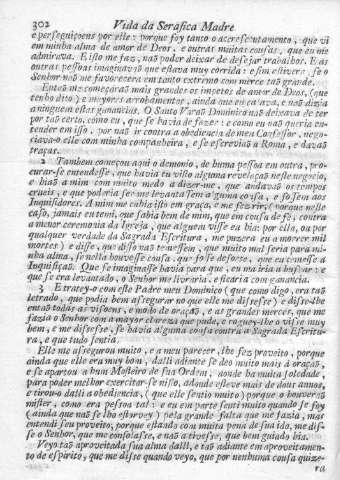 302 Vida da Serafica Madre
e perseguiçoens por elle: porque foy tanto o acrescentamento, que vi
em minha alma de amor de Deos, e outras muitas cousas, que eu me
admirava. E isto me faz, naõ poder deixar de desejar trabalhos. E as
outras pessoas imaginavaõ que estava muy corrida: e sim estivera se o
Senhor naõ me favorecera em tanto extremo com merce taõ grande.
Entaõ me começaraõ mais grandes os impetos de amor de Deos, (que
tenho dito) e mayores arrobamentos, ainda que eu calava, e naõ dizia
a ninguem estas ganancias. O Santo Varaõ Dominico naõ deixava de ter
por taõ certo, como eu, que se havia de fazer: e como eu naõ queria en-
tender em isso, por naõ ir contra a obediencia de meu Confessor, nego-
ciava-o elle com minha companheira, e se escreviaõ a Roma, e davaõ
traças.
2 Tambem começou aqui o demonio, de huma pessoa em outra, pro-
curar-se entendesse, que havia eu visto alguma revelaçaõ neste negocio,
e hiaõ a mim com muito medo a dizer-me, que andavaõ os tempos
crueis, e que poderia ser me levantassem alguma cousa, e fossem aos
Inquisidores. A mim me cahia isto em graça, e me fez rir, (porque neste
caso, jamais eu temi, que sabia bem de mim, que em cousa de fé, contra
a menor ceremonia da Igreja, que alguem visse eu hia: por ella, ou por
qualquer verdade da Sagrada Escritura, me puzera eu a morrer mil
mortes) e disse, que disso naõ temessem, que muito mal seria para mi-
nha alma, se nella houvesse cousa, que fosse de sorte, que eu temesse a
Inquisiçaõ. Que se imaginasse havia para que, eu ma iria a buscar: e
que se era levantado, o Senhor me livraria, e ficaria com ganancia.
3 E tratey-o com este Padre meu Dominico (que como digo, era taõ
letrado, que podia bem assegurar no que elle me dissesse) e disse-lhe
entaõ todas as visoens, e modo de oraçaõ, e as grandes merces, que me
fazia o Senhor com a mayor clareza que pude, e roguey-lhe o visse muy
bem, e me dissesse, se havia alguma cousa contra a Sagrada Escritu-
ra, e que tudo sentia.
Elle me assegurou muito, e a meu parecer, lhe fez proveito, porque
ainda que elle era muy bom, dalli adiante se deo muito mais á oraçaõ,
e se apartou a hum Mosteiro de sua Ordem, aonde ha muita soledade,
para poder melhor exercitar-se nisso, adonde esteve mais de dous annos,
e tirou-o dalli a obediencia, (que elle sentio muito) porque o houveraõ
mister, como era pessoa tal: e eu em parte senti muito quando se foy
(ainda que naõ se lho estorvey) pela grande falta que me fazia, mas
entendi seu proveito, porque estando com muita pena de sua ida, me dis-
se o Senhor, que me consolasse, e naõ a tivesse, que bem guiado hia.
Veyo taõ aproveitada sua alma dalli, e taõ adiante em aproveitamen-
to de espirito, que me disse quando veyo, que por nenhuma cousa quize-
ra